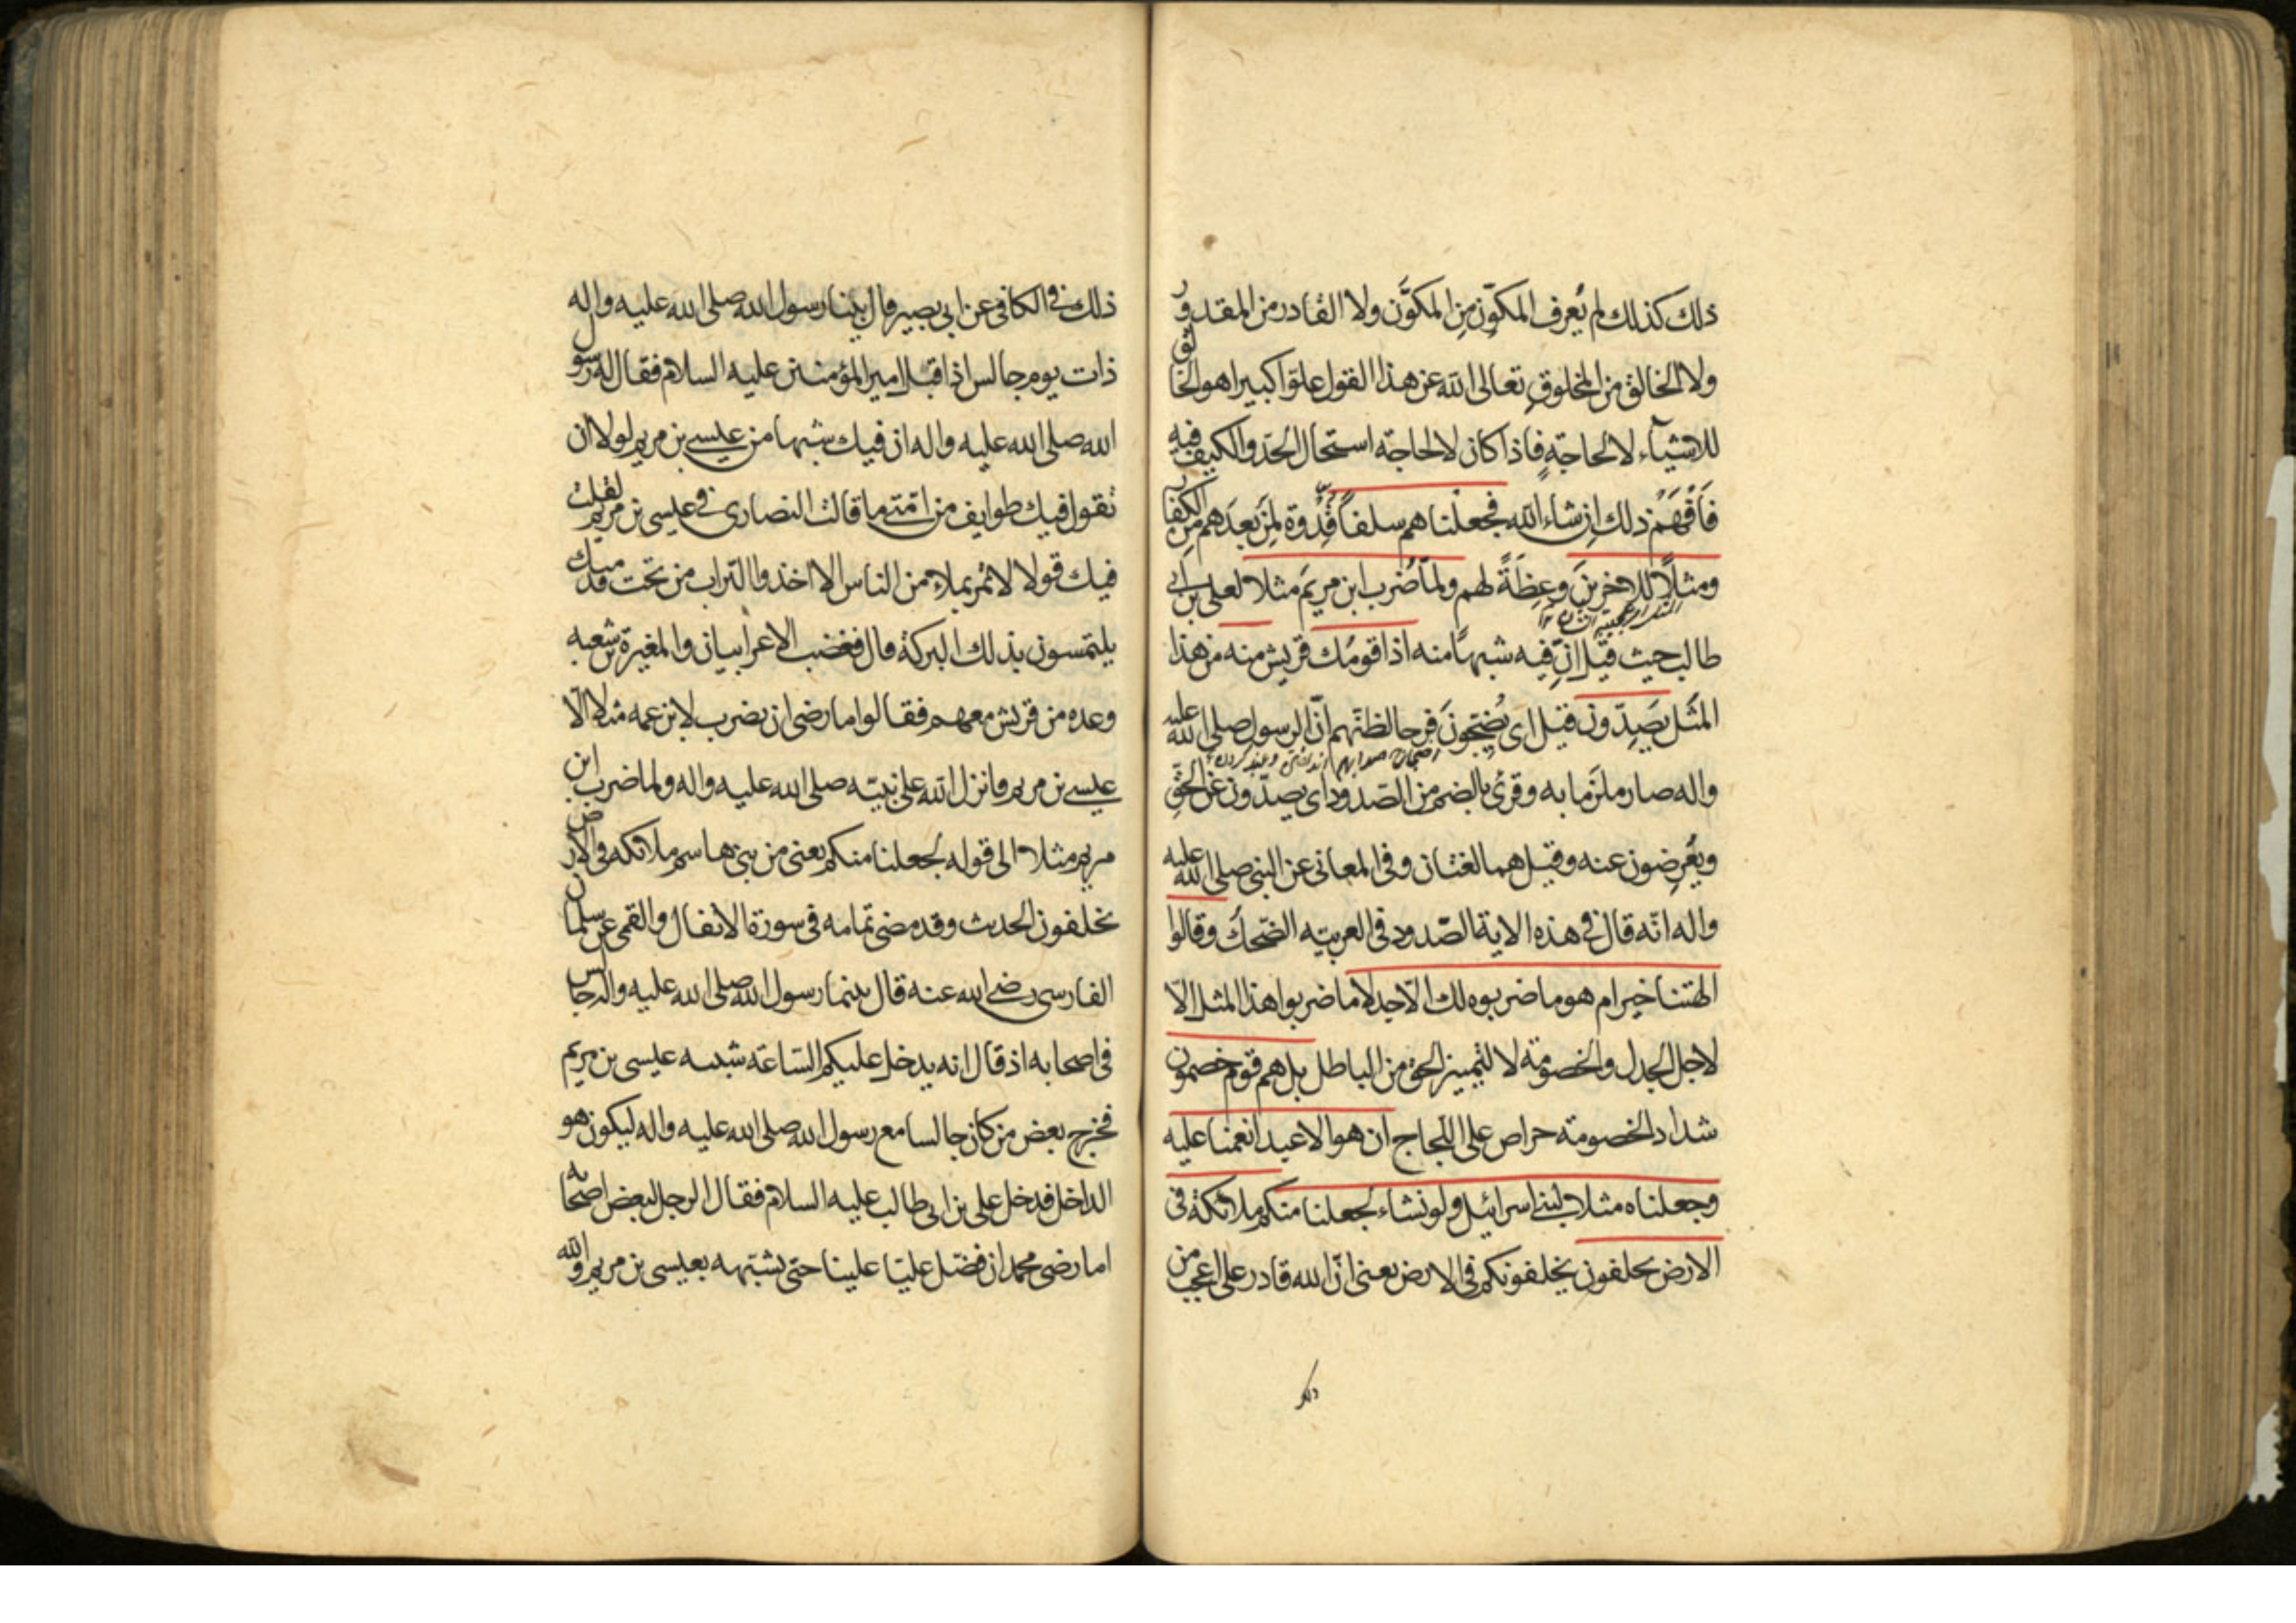 ذلك كذلك لم يُعرف المكوِّن مِن المكوَّن ولا القادر من المقدور
ولا الخالق من المخلوقِ تعالى الله عن هذا القول علوّا كبيرا هو الخالق
للاشياء لا لحاجةٍ فاذا كان لا لحاجة استحال الحدّ والكيف فيه
فَافْهَمْ ذلك اِن شاء الله فجعلناهم سلفاً قُدْوة لِمَن بعدَهم مِن الكفار
ومثلًا للاخرينَ وعِظَةً لهم ولمّا ضُرب ابن مريَم مثلا لعلى بن ابى
طالب حيث قيل اِنّ فيه شبهًا منه اذا قومُك قريش منه من هذا
المثَل يَصِدّون قيل اى يُضِجّونَ فرحا لظنّهم انّ الرسول صلى الله عليه
واله صار ملزَما به وقرئ بالضم من الصّدود اى يصدّون عَن الحَقِّ
ويُعرِضون عنه وقيل هما لغتان وفى المعانى عن النبى صلى الله عليه
واله انّه قال فى هذه الاية الصّدود فى العربيّه الضّحكُ وقالوا
الهتنا خير ام هو ما ضربوه لك الّا جدلا ما ضربوا هذا المثل الّا
لاجل الجدل والخصومة لا لتمييز الحق من الباطل بل هم قوم خصمون
شداد الخصومة حراص على اللّجاج ان هو الا عبد انعمنا عليه
وجعلناه مثلا لبنى اسرائيل ولو نشاء لجعلنا منكم ملائكة فى
الارض يخلفون يخلفونكم فى الارض يعنى انّ الله قادر على اعجب من
ذلك فى الكافى عن ابى بصير قال بينا رسول الله صلى الله عليه واله
ذات يوم جالس اذ اقبل امير المؤمنين عليه السلام فقال له رسول
الله صلى الله عليه واله ان فيك شبها من عيسى بن مريم لولا ان
تقول فيك طوايف من امّتى ما قالت النصارى فى عيسى بن مريم لقلت
فيك قولا لا تمر بملاء من الناس الا اخذوا التراب من تحت قدميك
يلتمسون بذلك البركة قال فغضب الاعرابيان والمغيرة بن شعبه
وعده من قريش معهم فقالوا ما رضى ان يضرب لابن عمه مثلا الّا
عيسى بن مريم فانزل الله على نبيّه صلى الله عليه واله ولما ضرب ابن
مريم مثلا الى قوله لجعلنا منكم يعنى من بنى هاشم ملائكه فى الارض
يخلفون الحديث وقد مضى تمامه فى سورة الانفال والقمى عن سلمان
الفارسى رضى الله عنه قال بينما رسول الله صلى الله عليه واله جالس
فى اصحابه اذ قال انه يدخل عليكم السّاعة شبيه عيسى بن مريم
فخرج بعض من كان جالسا مع رسول الله صلى الله عليه واله ليكون هو
الداخل فدخل على بن ابى طالب عليه السلام فقال الرجل لبعض اصحابه
اما رضى محمد ان فضّل عليّا علينا حتى يشبّهه بعيسى بن مريم والله